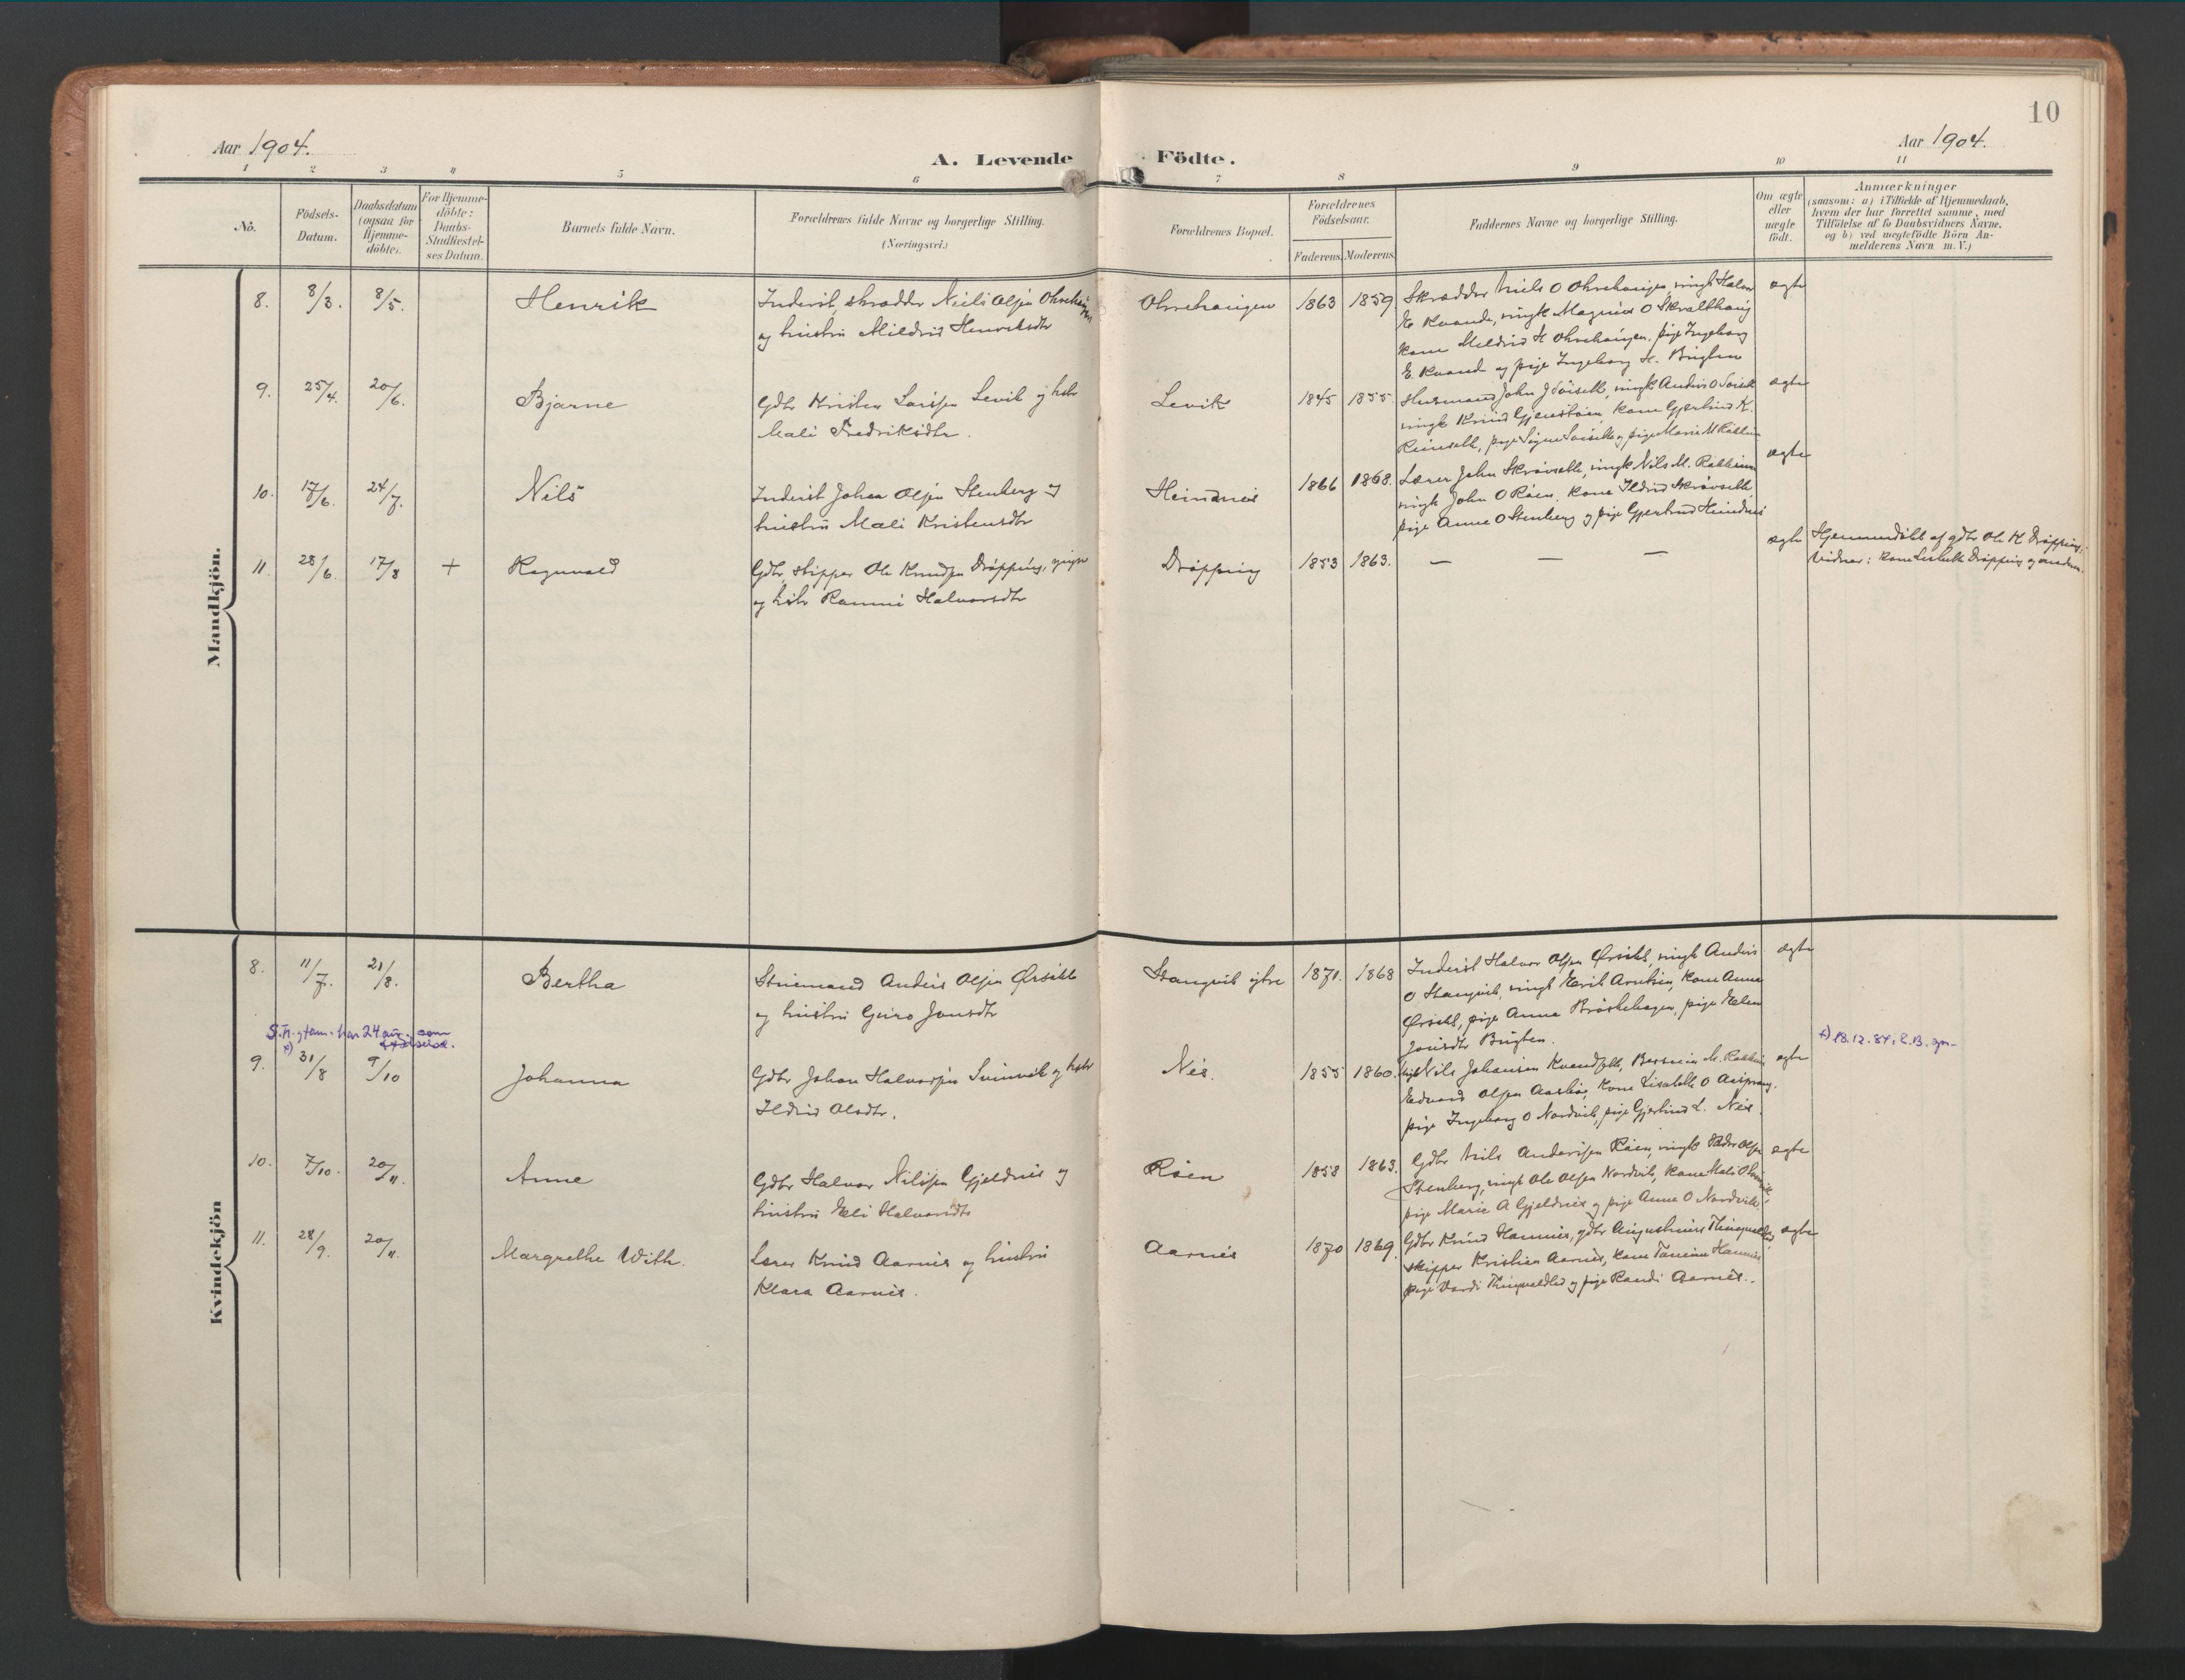 10
Aar 1904.
A. Levende Födte.
Aar 1904.
1 2 3 4 5 6 7 8 9 10 11
No.
Födsels-
Datum.
Daabsdatum
(ogsaa for
Hjemme-
döbte).
For Hjemme-
döbte:
Daabs-
Stadfæstel-
ses Datum.
Barnets fulde Navn.
Forældrenes fulde Navne og borgerlige Stilling.
(Næringsvei.)
Forældrenes Bopæl.
Forældrenes
Födselsaar.
Faderens. Moderens.
Faddernes Navne og borgerlige Stilling.
Om ægte
eller
uægte
födt.
Anmærkninger
(saasom: a) i Tilfælde af Hjemmedaab,
hvem der har forrettet samme, med
Tilföielse af to Daabsvidners Navne,
og b) ved uægtefödte Börn An-
melderens Navn m. V.)
Mandkjön.
8. 8/3. 8/5. Henrik
Inderst, skrædder Niels Olsen Ohrehaugen
og hustru Mildrid Henriksdtr
Ohrehaugen 1863 1859
Skrædder Niels O Ohrehaugen, ungk Halvor
E. Kvande, ungk Magnus O Skralthaug
kone Mildrid H Ohrehaugen, pige Ingeborg
E. Kvande og pige Ingeborg H. Bugten
ægte
9. 25/4. 20/6. Bjarne
Gdbr Kristen Larssen Levik og hstr
Mali Fredriksdtr.
Levik 1845 1855.
Husmand John J Søisetb, ungk Anders O Søisetb
ungk Knud Gjenstøen, kone Gjertrud K.
pige Signe Søisetb og pige Marie M
ægte
10. 17/6. 24/7. Nils
Inderst Johan Olsen Stenberg og
hustru Mali Kristensdtr
Heindnes 1866 1868.
Lærer John Skrøvseth, ungk Nils M.
ungk John O Røen, kone Ildrid Skrøvseth
pige Anne O Stenberg og pige Gjertrud Heindnes
ægte
11. 28/6. 17/8 + Ragnvald
Gdbr, skipper Ole Knudsen Drøpping, yngre
og hstr Rannei Halvorsdtr
Drøpping 1853 1863.
— — —
ægte
Hjemmedøbt af gdbr Ole K Drøpping;
Vidner: kone Lisbeth Drøpping og moderen.
Kvindekjön
8. 11/7. 21/8. Bertha
Struemand Anders Olsen Ørsetb
og hustru Guro Jonsdtr
Stangvik øvre 1871. 1868
Inderst Halvor Olsen Ørsetb, ungk Anders
O Stangvik, ungk Erik Arntsen, kone Anne
Ørsetb, pige Anne Brøskehagen, pige Elen
Jonsdtr Bugten.
ægte
S.N. g fam. har 24 aug. som
x)
x) 18.12.84, E.B. spr.
9. 31/8 9/10 Johanna
Gdbr Johan Halvorsen Svinvik og hstr
Ildrid Olsdtr.
Nes. 1855 1860.
ungk Nils Johansen
Edvard Olsen Aasbø, kone Lisabeth O
pige Ingeborg O Nordvik, pige Gjertrud L. Nes.
ægte
10. 7/10. 20/11. Anne
Gdbr Halvor Nilssen Gjeldnes og
hustru Eli Halvorsdtr
Røen 1858 1863.
Gdbr Nils Anderssen Røen, ungk Peder Olsen
Stenberg, ungk Ole Olsen Nordvik, kone Mali
pige Marie A Gjeldnes og pige Anne O Nordvik.
ægte
11. 28/9. 20/11. Margrethe With.
Lærer Knud Aarnes og hustru
Klara Aarnes.
Aarnes 1870 1869.
Gdbr Knud Hamnes, gdbr Augustinus
skipper Kristian Aarnes, kone Hamnes
pige Vardi og pige Randi Aarnes.
ægte